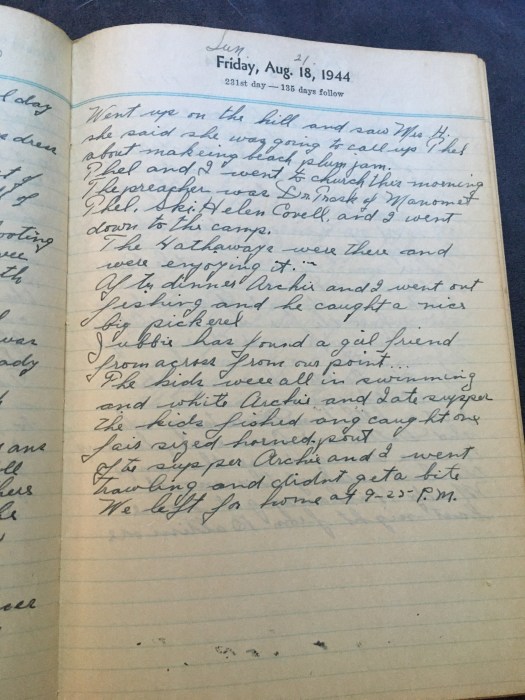 Sun. 21.
Friday, Aug. 18, 1944
231st day — 135 days follow
Went up on the hill and saw Mrs H.
she said she was going to call up Phel
about makeing beach plum jam.
Phel and I went to church this morning
The preacher was Dr Trask of Manomet
Phel, Ski, Helen Covell, and I went
down to the camp.
The Hathaways were there and
were enjoying it.
After dinner Archie and I went out
fishing and he caught a nice
big pickerel
has found a girl friend
from across from our point...
The kids were all in swimming
and while Archie and I ate supper
the kids fished and caught one
fair sized horned pout
After supper Archie and I went
trawling and didnt get a bite
We left for home at 9-25 P.M.
l day
dress
of
of
ooting
th
was
ady
ans